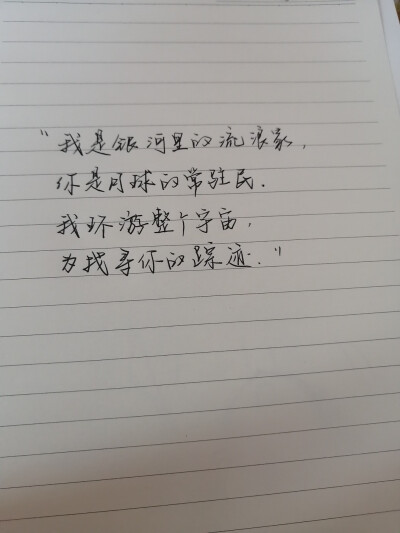 "我是银河里的流浪家,
你是月球的常驻民.
我环游整个宇宙,
为找寻你的踪迹."